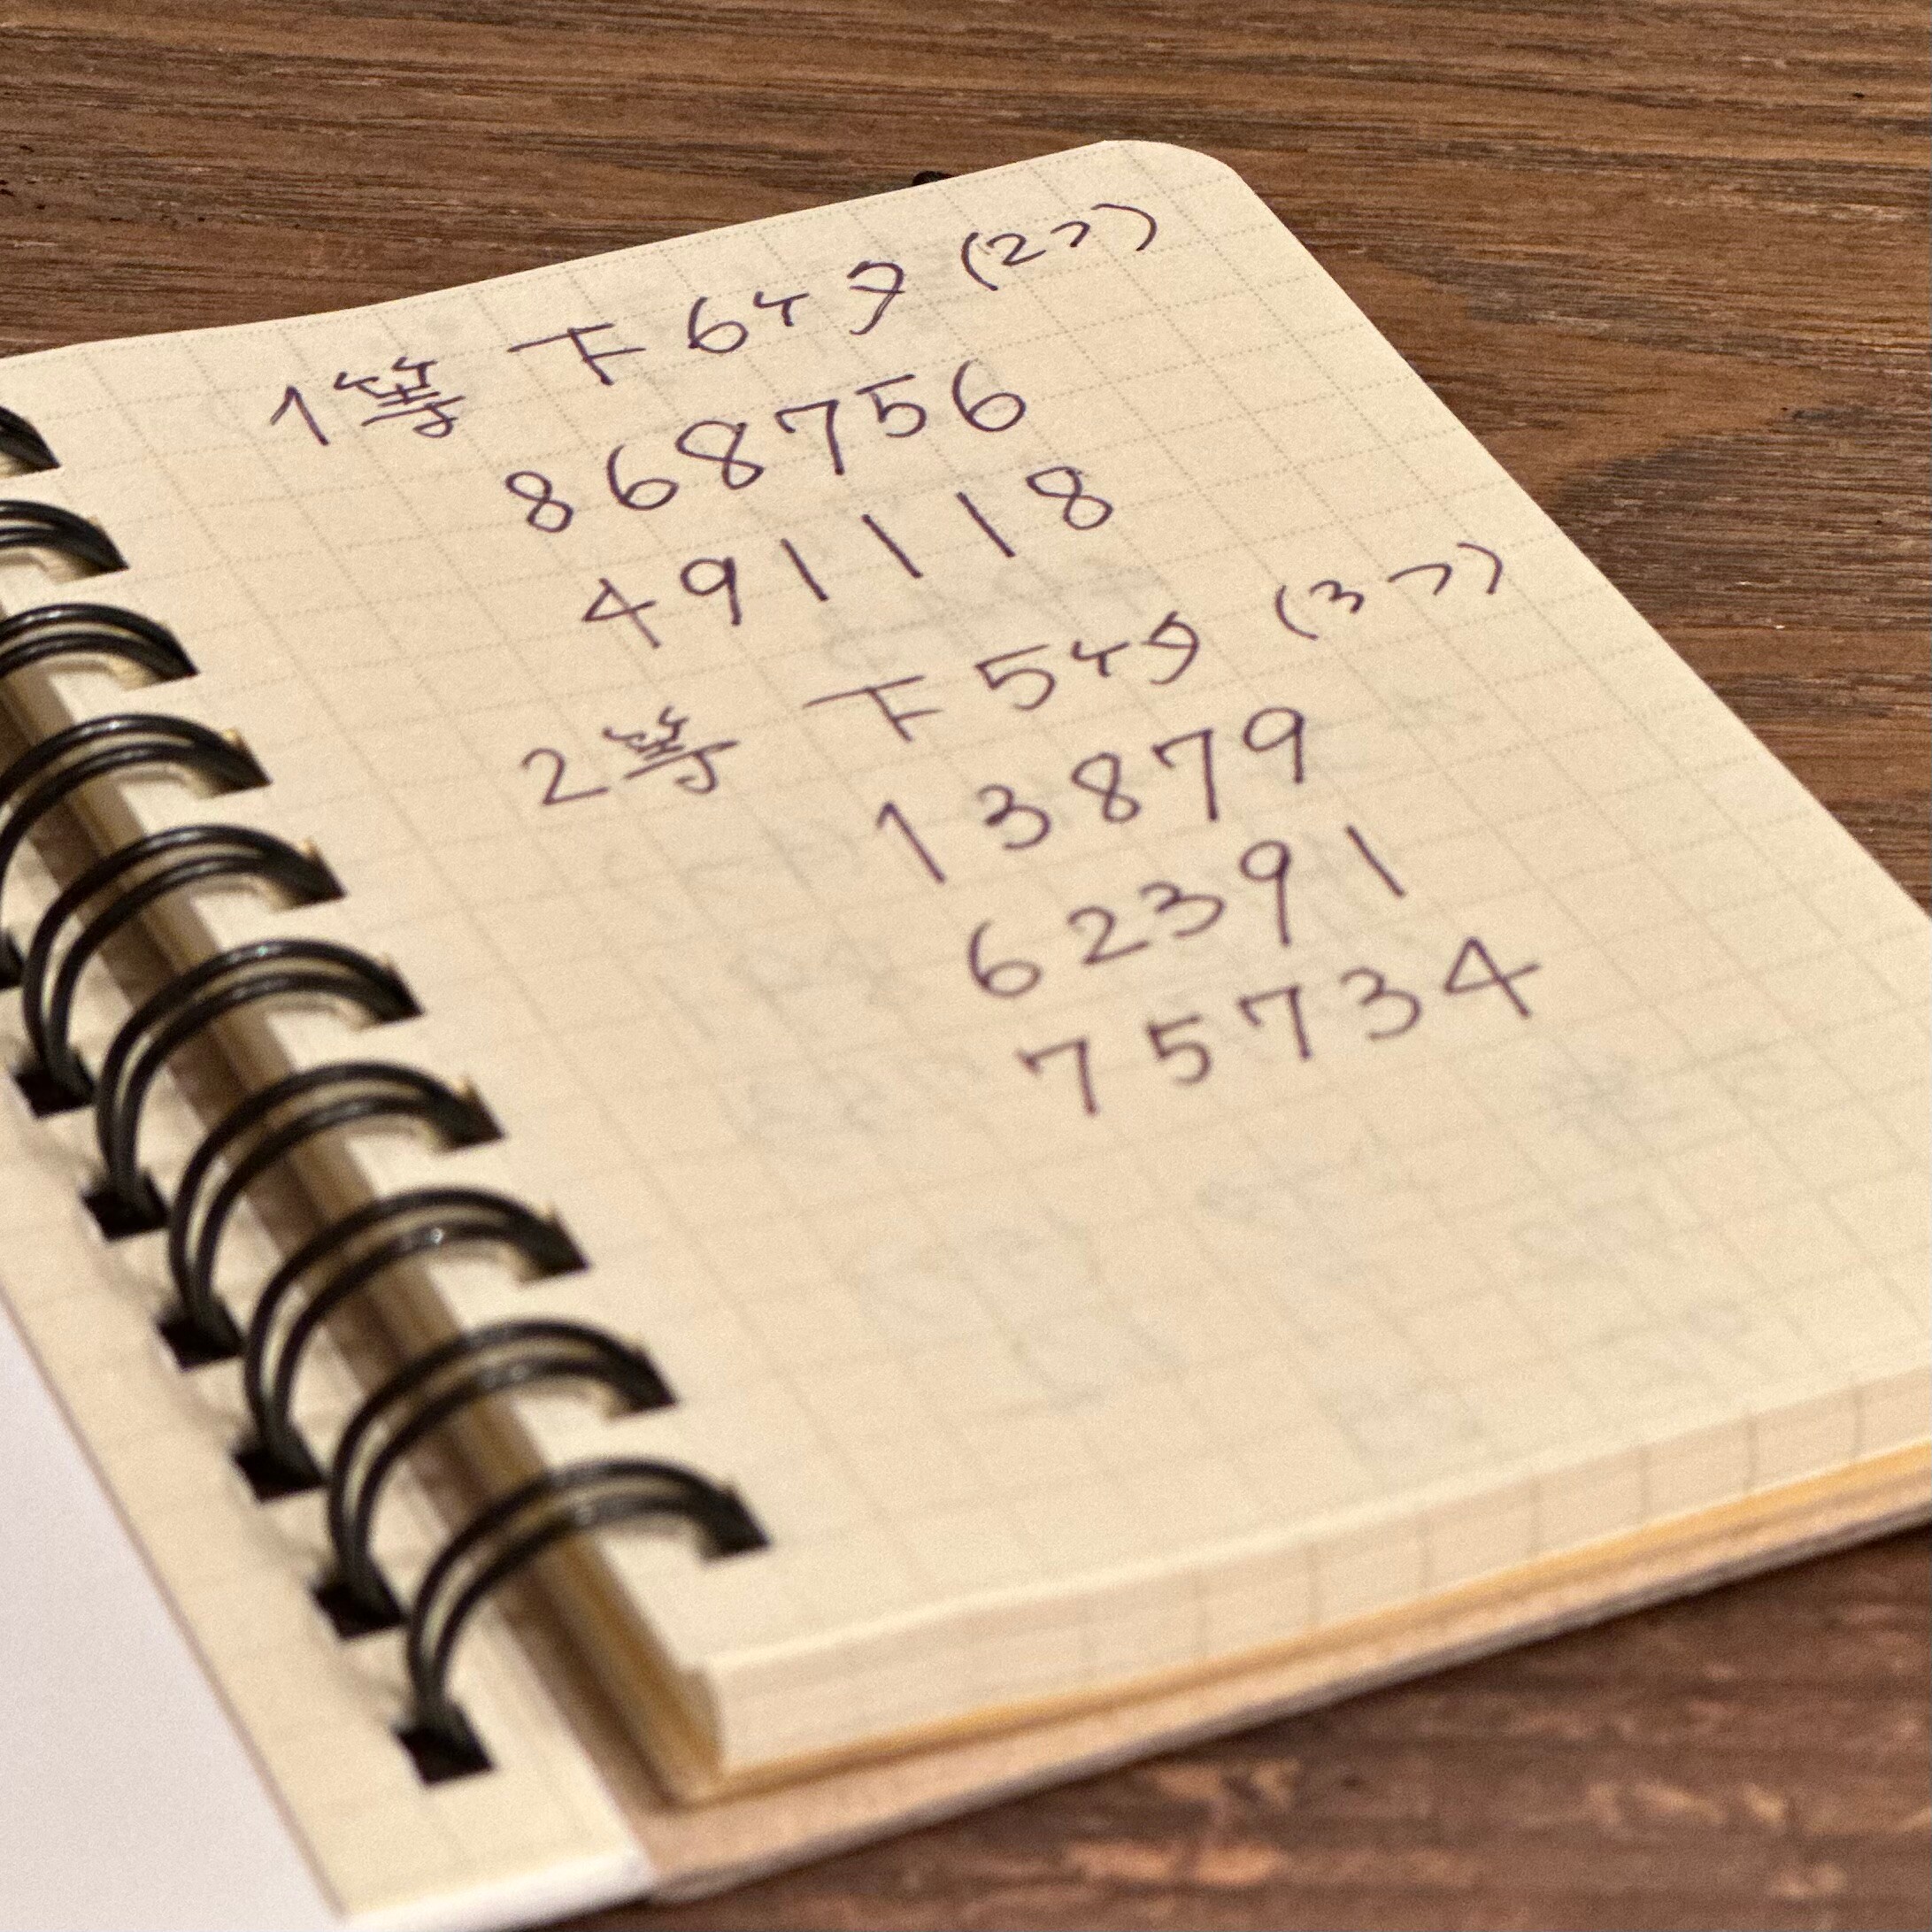 1等 下6ケタ (2つ)
868756
491118
2等 下5ケタ (3つ)
13879
62391
75734